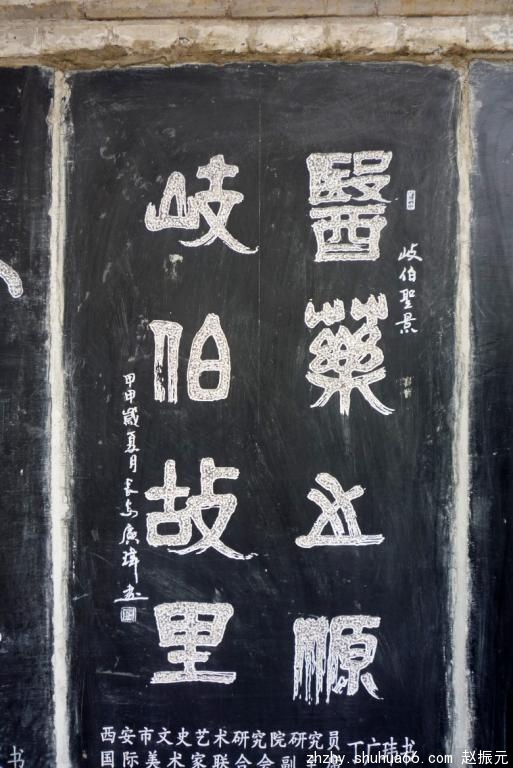 岐伯聖景
醫藥之源
岐伯故里
甲申歲夏月长安廣瑋書
西安市文史艺术研究院研究员
国际美术家联合会副
丁广玮书
书
zhzhy.shuhua66.com 赵振元